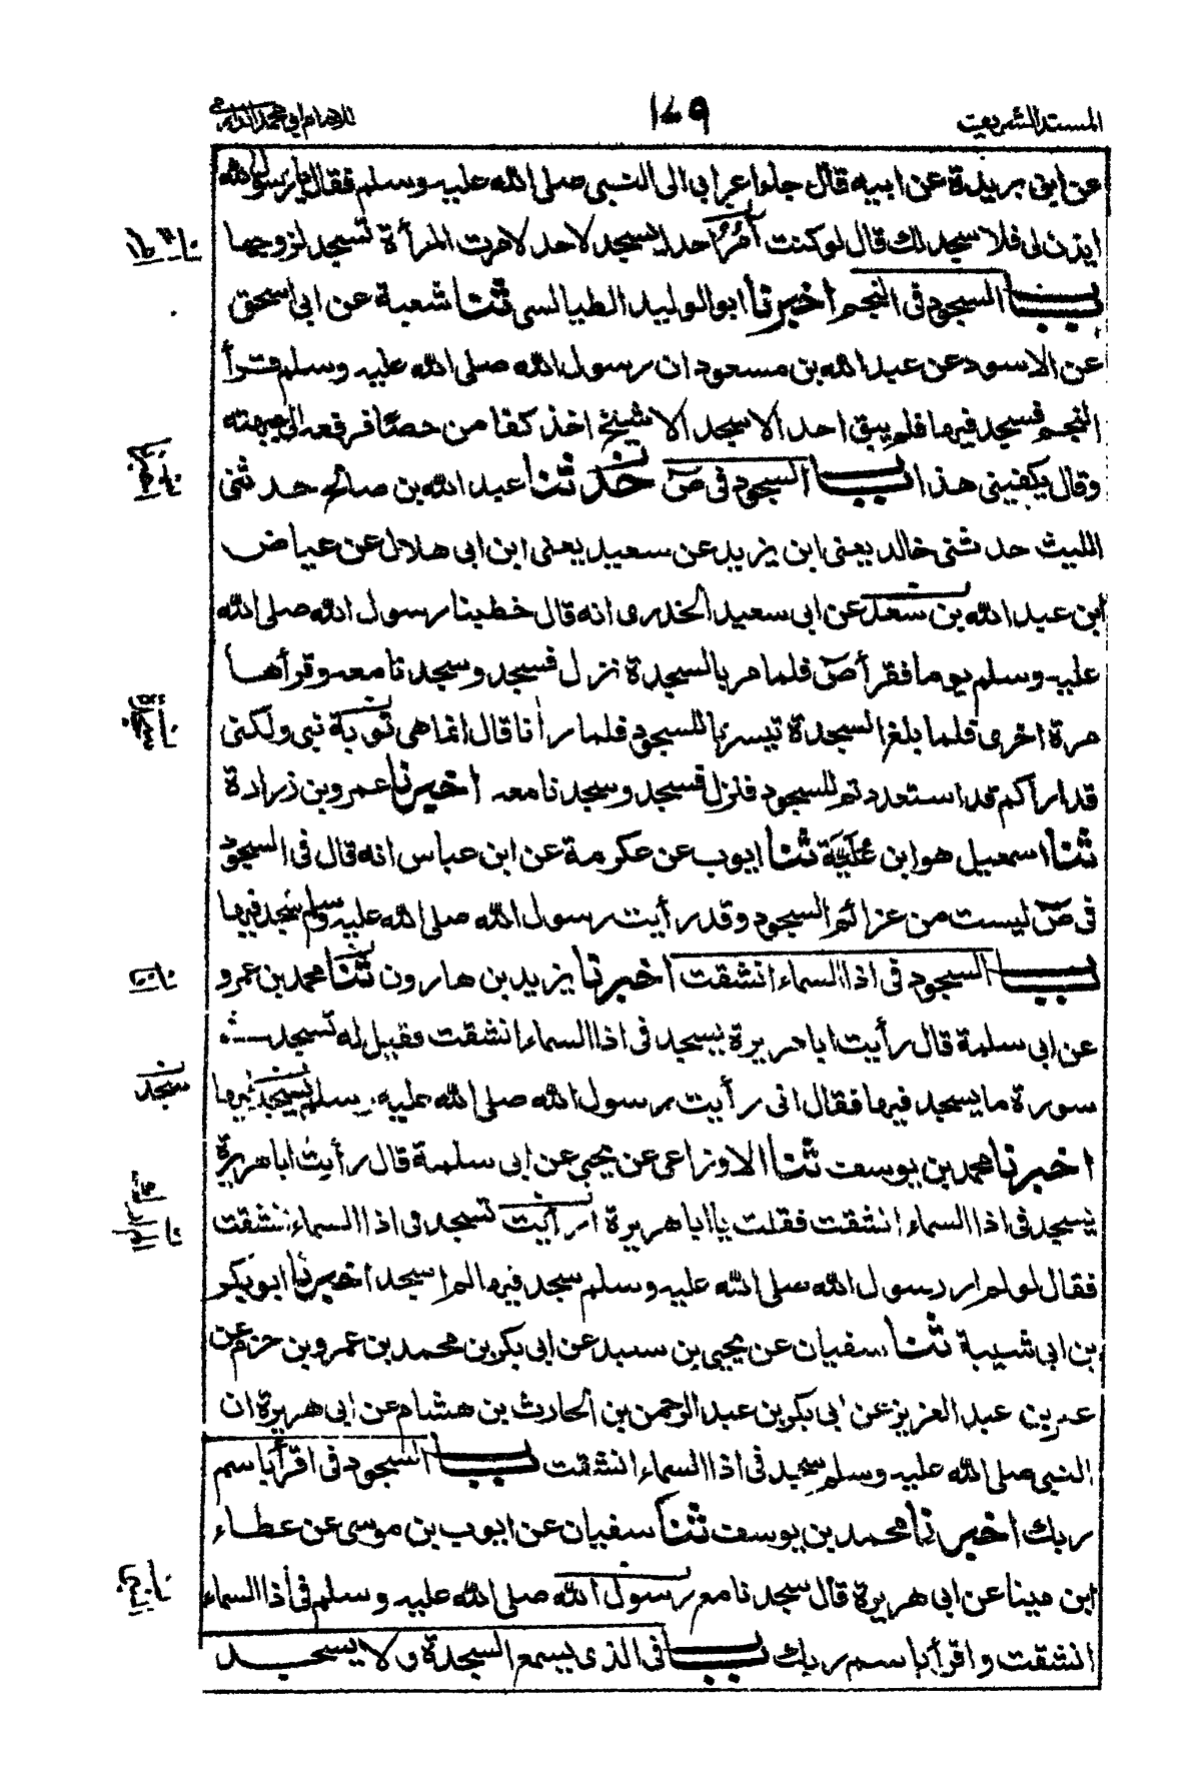 المسند الشريف ١٧٩ للامام ابي محمد الدارمي
عن ابن بريدة عن ابيه قال جاء اعرابى الى النبى صلى الله عليه وسلم فقال يا رسول الله
ايذن لى فلا سجد لك قال لو كنت آمرُ احدا يسجد لاحد لامرت المرأة تسجد لزوجها
باب السجود فى النجم اخبرنا ابو الوليد الطيالسى ثنا شعبة عن ابى اسحق
عن الاسود عن عبد الله بن مسعود ان رسول الله صلى الله عليه وسلم قرأ
النجم فسجد فيها فلم يبق احد الا سجد الا شيخ اخذ كفا من حصًا فرفعه الى جبهته
وقال يكفينى هذا باب السجود فى صٓ حدثنا عبد الله بن صالح حدثنى
الليث حدثنى خالد يعنى ابن يزيد عن سعيد يعنى ابن ابى هلال عن عياض
ابن عبد الله بن سعد عن ابى سعيد الخدرى انه قال خطبنا رسول الله صلى الله
عليه وسلم يوما فقرأ صٓ فلما مر بالسجدة نزل فسجد وسجدنا معه وقرأها
مرة اخرى فلما بلغ السجدة تيسرنا للسجود فلما رأنا قال انما هى توبة نبى ولكنى
قد اراكم قد استعددتم للسجود فنزل فسجد وسجدنا معه اخبرنا عمرو بن زرارة
ثنا اسمعيل هو ابن عُلَيَّة ثنا ايوب عن عكرمة عن ابن عباس انه قال فى السجود
فى صٓ ليست من عزائم السجود وقد رأيت رسول الله صلى الله عليه وسلم سجد فيها
باب السجود فى اذا السماء انشقت اخبرنا يزيد بن هارون ثنا محمد بن عمرو
عن ابى سلمة قال رأيت ابا هريرة يسجد فى اذا السماء انشقت فقيل له تسجد فى
سورة ما يسجد فيها فقال انى رأيت رسول الله صلى الله عليه وسلم يسجد فيها
اخبرنا محمد بن يوسف ثنا الاوزاعى عن يحيى عن ابى سلمة قال رأيت ابا هريرة
يسجد فى اذا السماء انشقت فقلت يا ابا هريرة أرأيت تسجد فى اذا السماء انشقت
فقال لو لم ار رسول الله صلى الله عليه وسلم سجد فيها لم اسجد اخبرنا ابو بكر
بن ابى شيبة ثنا سفيان عن يحيى بن سعيد عن ابى بكر بن محمد بن عمرو بن حزم عن
عمر بن عبد العزيز عن ابى بكر بن عبد الرحمن بن الحارث بن هشام عن ابى هريرة ان
النبى صلى الله عليه وسلم سجد فى اذا السماء انشقت باب السجود فى اقرأ باسم
ربك اخبرنا محمد بن يوسف ثنا سفيان عن ايوب بن موسى عن عطاء
ابن مينا عن ابى هريرة قال سجدنا مع رسول الله صلى الله عليه وسلم فى اذا السماء
انشقت واقرأ باسم ربك باب فى الذى يسمع السجدة ولا يسجد
يسجد